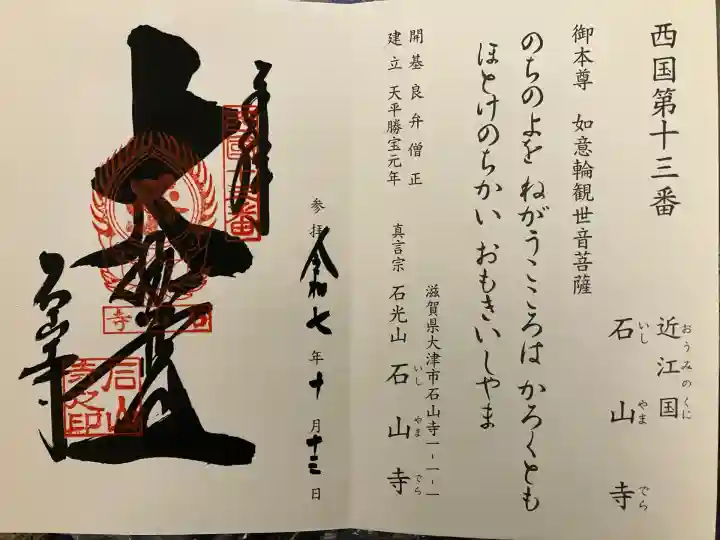 西国第十三番
近江国
おうみのくに
石山寺
いしやまでら
御本尊 如意輪観世音菩薩
のちのよを ねがうこころは かろくとも
ほとけのちかい おもきいしやま
開基良弁僧正
建立 天平勝宝元年
滋賀県大津市石山寺一-一-一
真言宗 石光山 石山寺
いしやまでら
参拝 令和七年十月十三日
奉拝
西国十三番
大悲殿
石山寺
石山寺
石山寺之印